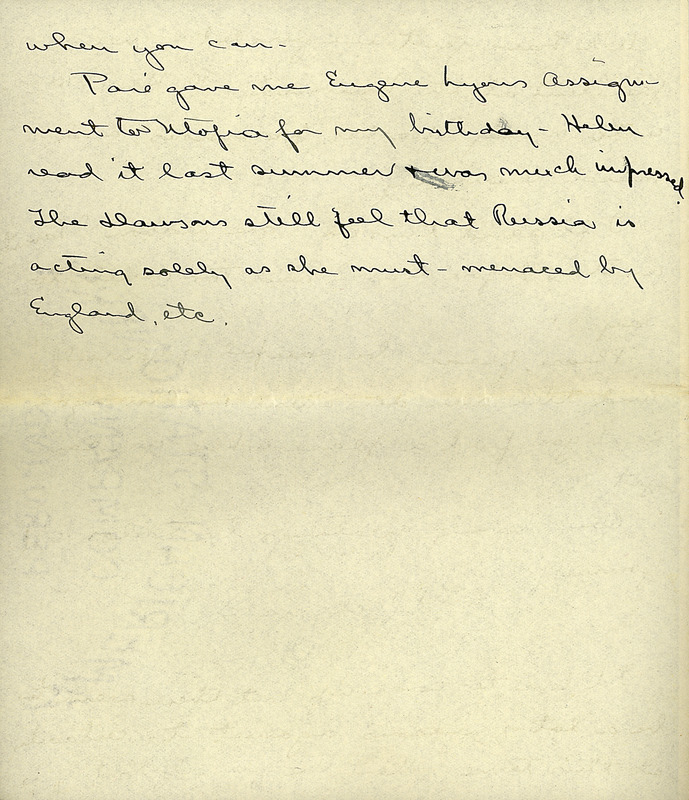 when you can -
Paié gave me Eugene Lyons Assign-
ment to Utopia for my birthday - Helen
read it last summer & was much impressed.
The Dawsons still feel that Russia is
acting solely as she must - menaced by
England, etc.